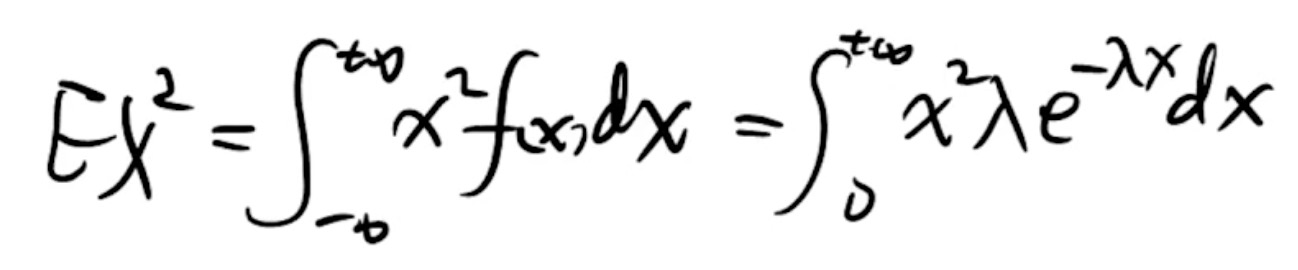 EX² = ∫_{-∞}^{+∞} x² f(x) dx = ∫_0^{+∞} x² λ e^{-λx} dx